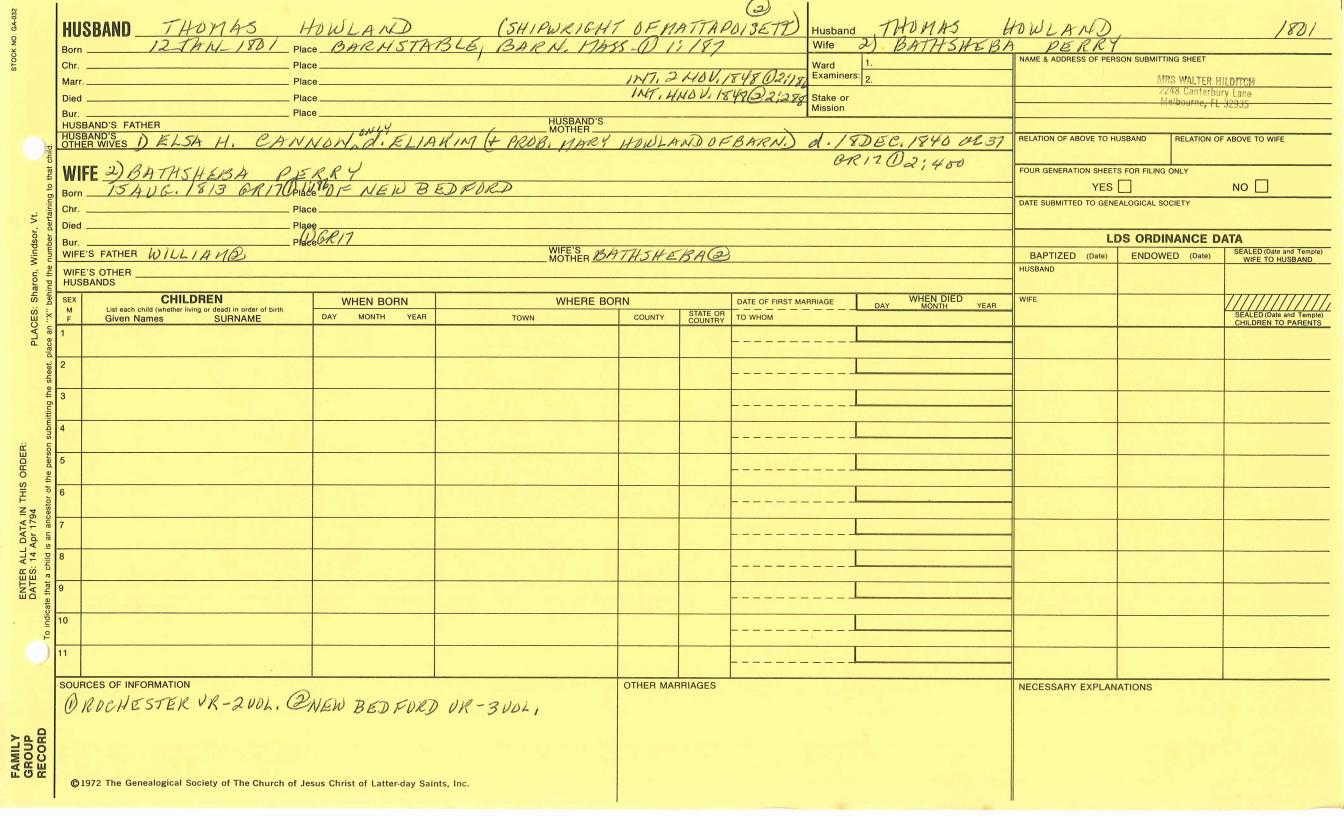 STOCK NO. GA-032
②
HUSBAND THOMAS HOWLAND (SHIPWRIGHT OF MATTAPOISETT)
Born 12 JAN. 1801 Place BARNSTABLE, BARN. MASS-① 1:187
Chr. Place
Marr. Place INT. 2 NOV. 1848 ①2:18
Died Place INT. 4 NOV. 1849 ② 2:288
Bur. Place
HUSBAND'S FATHER HUSBAND'S MOTHER
HUSBAND'S OTHER WIVES 1) ELSA H. CANNON, ONLY d. ELIAKIM (+ PROB. MARY HOWLAND OF BARN.) d. 18 DEC. 1840 AE 37
GR17 ① 2:400
WIFE 2) BATHSHEBA PERRY
Born 15 AUG. 1813 GR17 ① Place OF NEW BEDFORD
Chr. Place
Died Place
Bur. Place ① GR17
WIFE'S FATHER WILLIAM② WIFE'S MOTHER BATHSHEBA②
WIFE'S OTHER HUSBANDS
Husband THOMAS HOWLAND 1801
Wife 2) BATHSHEBA PERRY
Ward Examiners: 1.
2.
Stake or Mission
NAME & ADDRESS OF PERSON SUBMITTING SHEET
MRS WALTER HILDITCH
2248 Canterbury Lane
Melbourne, FL 32935
RELATION OF ABOVE TO HUSBAND RELATION OF ABOVE TO WIFE
FOUR GENERATION SHEETS FOR FILING ONLY
YES NO
DATE SUBMITTED TO GENEALOGICAL SOCIETY
LDS ORDINANCE DATA
BAPTIZED (Date) ENDOWED (Date) SEALED (Date and Temple) WIFE TO HUSBAND
HUSBAND
WIFE
SEALED (Date and Temple) CHILDREN TO PARENTS
SEX M F
CHILDREN
List each child (whether living or dead) in order of birth
Given Names SURNAME
WHEN BORN
DAY MONTH YEAR
WHERE BORN
TOWN COUNTY STATE OR COUNTRY
DATE OF FIRST MARRIAGE
TO WHOM
WHEN DIED
DAY MONTH YEAR
1
2
3
4
5
6
7
8
9
10
11
SOURCES OF INFORMATION
① ROCHESTER VR-2 VOL. ② NEW BEDFORD VR-3 VOL.
OTHER MARRIAGES
NECESSARY EXPLANATIONS
©1972 The Genealogical Society of The Church of Jesus Christ of Latter-day Saints, Inc.
FAMILY GROUP RECORD
ENTER ALL DATA IN THIS ORDER:
DATES: 14 Apr 1794 PLACES: Sharon, Windsor, Vt.
To indicate that a child is an ancestor of the person submitting the sheet, place an "X" behind the number pertaining to that child.